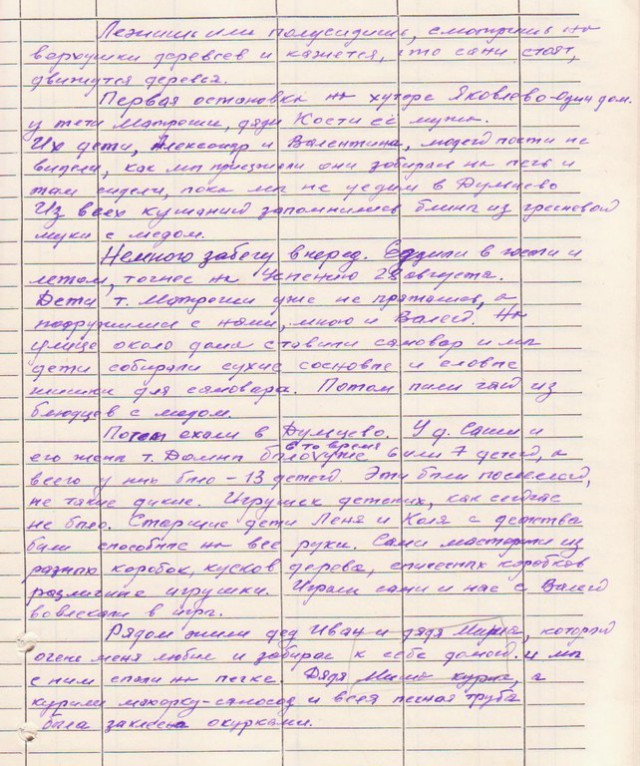 Лежишь или полусидишь, смотришь на
верхушки деревьев и кажется, что сани стоят,
движутся деревья.
Первая остановка на хуторе Яковлево-один дом.
у тети Матроши, дяди Кости её мужа.
Их дети, Александр и Валентина, людей почти не
видели, как мы приезжали они забирались на печь и
там сидели, пока мы не уедим в Думцево
Из всех кушаний запомнились блины из гречневой
муки с медом.
Немного забегу вперед. Ездили в гости и
летом, точнее на Успению 28 августа.
Дети т. Матроши уже не прятались, а
подружились с нами, мною и Валей. На
улице около дома ставили самовар и мы
дети собирали сухие сосновые и еловые
шишки для самовара. Потом пили чай из
блюдцев с медом.
Потом ехали в Думцево. У д. Саши и
его жены т. Домны было в то время уже 7 детей, а
всего у них было – 13 детей. Эти были посмелей,
не такие дикие. Игрушек детских, как сейчас
не было. Старшие дети Леня и Коля с детства
были способные на все руки. Сами мастерили из
разных коробок, кусков дерева, спичечных коробков
различные игрушки. Играли сами и нас с Валей
вовлекали в игры.
Рядом жили дед Иван и дядя Миша, который
очень меня любил и забирал к себе домой. и мы
с ним спали на печке. Дядя Миша курил, а
курили махорку-самосад и вся печная труба
была заклеена окурками.